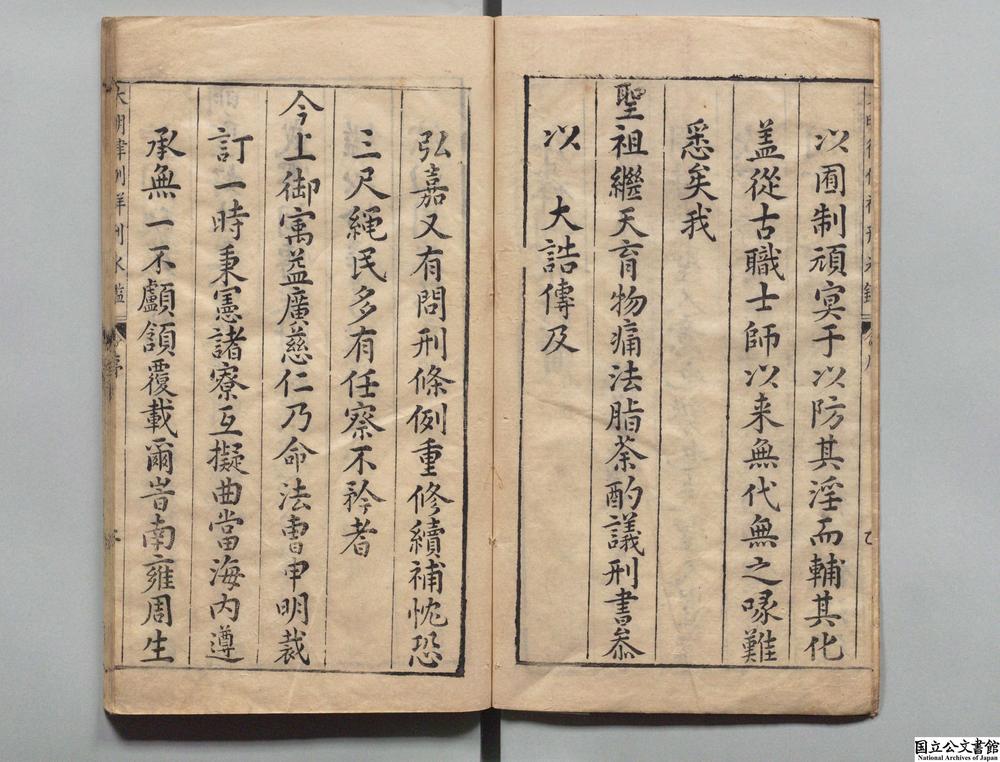 以囿制頑冥于以防其淫而輔其化
盖從古職士師以来無代無之喙難
悉矣我
聖祖繼天育物痛法脂荼酌議刑書叅
以　大誥傳及
弘嘉又有問刑條例重修續補忱恐
三尺繩民多有任察不矜者
今上御寓益廣慈仁乃命法曹申明裁
訂一時秉憲諸寮互擬曲當海内遵
承無一不顱頷覆載爾旹南雍周生
大明律例祥刑氷鑑
序
国立公文書館
National Archives of Japan